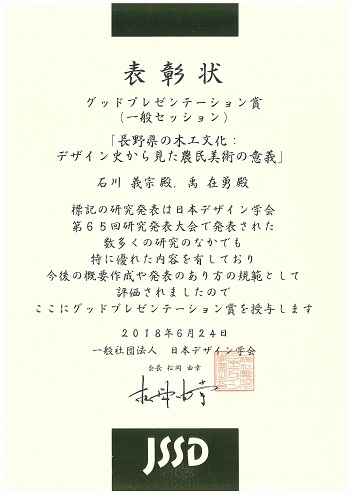 表彰状
グッドプレゼンテーション賞
(一般セッション)
「長野県の木工文化：
デザイン史から見た農民美術の意義」
石川 義宗殿、禹 在勇殿
標記の研究発表は日本デザイン学会
第65回研究発表大会で発表された
数多くの研究のなかでも
特に優れた内容を有しており
今後の概要作成や発表のあり方の規範として
評価されましたので
ここにグッドプレゼンテーション賞を授与します
2018年6月24日
一般社団法人 日本デザイン学会
会長 松岡 由幸
松岡由幸
JSSD